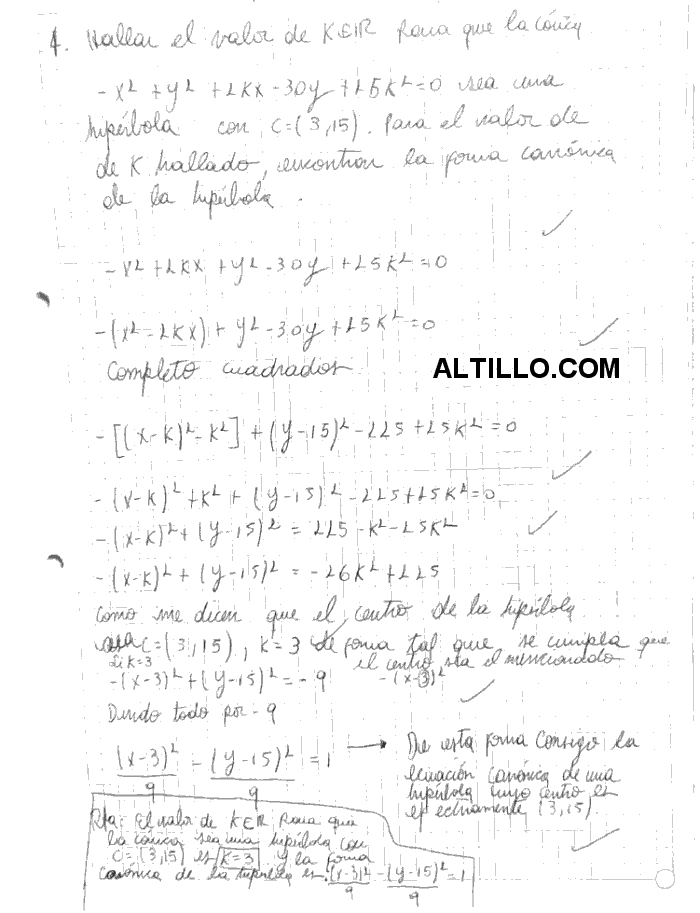 1. Hallar el valor de K∈IR para que la cónica
- x² + y² + 2Kx - 30y + 25K² = 0 sea una
hipérbola con C=(3,15). Para el valor de
de K hallado, encontrar la forma canónica
de la hipérbola.
- x² + 2Kx + y² - 30y + 25K² = 0
-(x² - 2Kx) + y² - 30y + 25K² = 0
Completo cuadrados
ALTILLO.COM
-[(x-K)² - K²] + (y-15)² - 225 + 25K² = 0
-(x-K)² + K² + (y-15)² - 225 + 25K² = 0
-(x-K)² + (y-15)² = 225 - K² - 25K²
-(x-K)² + (y-15)² = -26K² + 225
Como me dicen que el centro de la hipérbola
sea C=(3,15), K=3 de forma tal que se cumpla que
el centro sea el mencionado
Si K=3
-(x-3)² + (y-15)² = -9 -(x-3)²
Divido todo por -9
(x-3)²/9 - (y-15)²/9 = 1 → De esta forma consigo la
ecuación canónica de una
hipérbola cuyo centro es
efectivamente (3,15).
Rta: El valor de K∈IR para que
la cónica sea una hipérbola con
C=(3,15) es K=3 y la forma
canónica de la hipérbola es (x-3)²/9 - (y-15)²/9 = 1